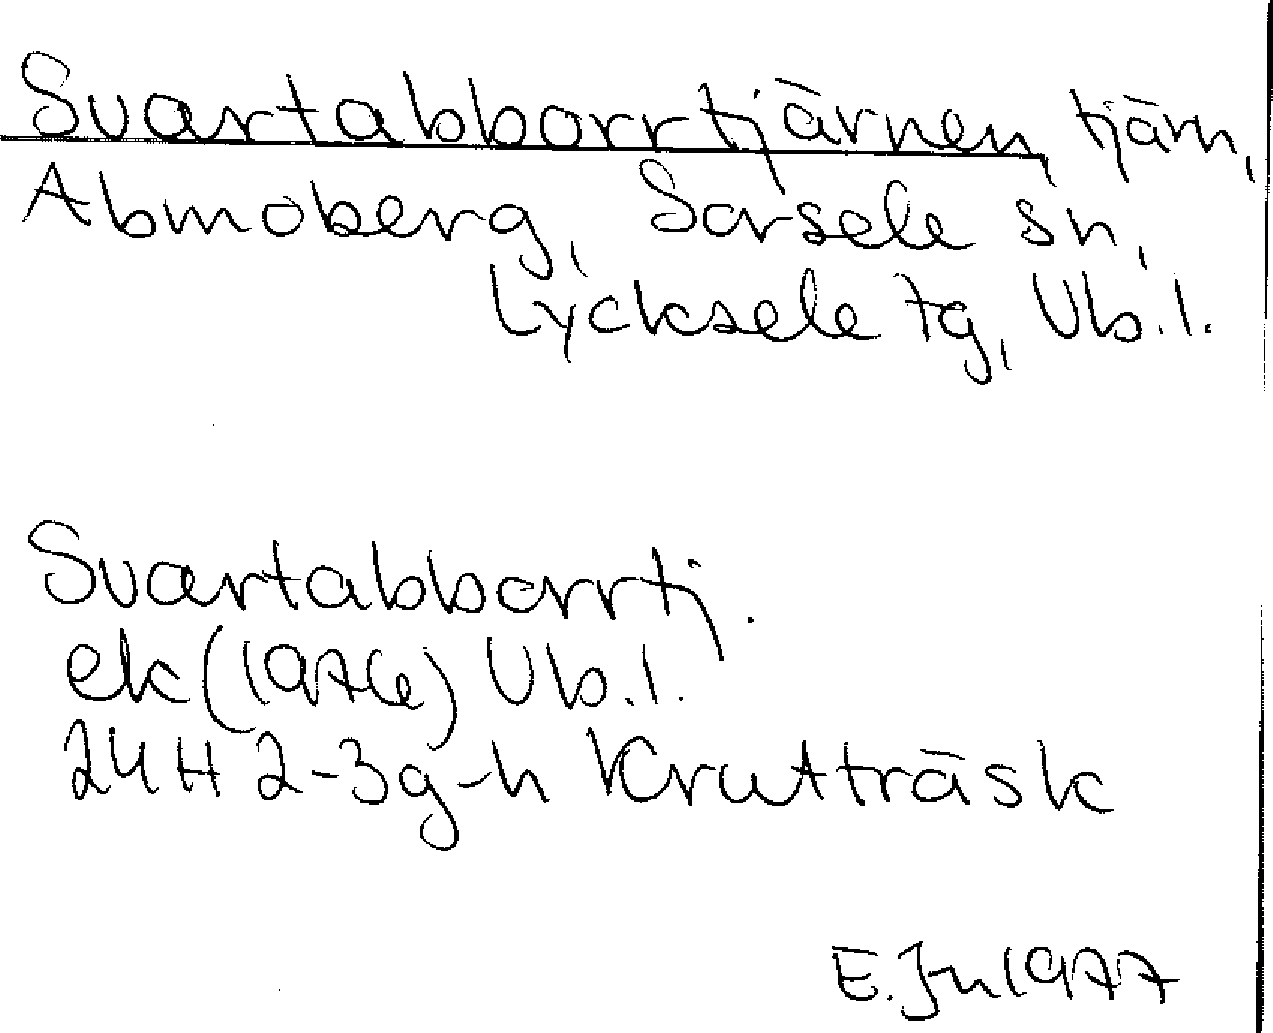 Svartabborrtjärnen, tjärn,
Abmoberg, Sorsele sn,
Lycksele tg, Vb.l.
Svartabborrtj.
ek (1976) Vb.l.
24H 2-3g-h Krutträsk
E. Jn 1977